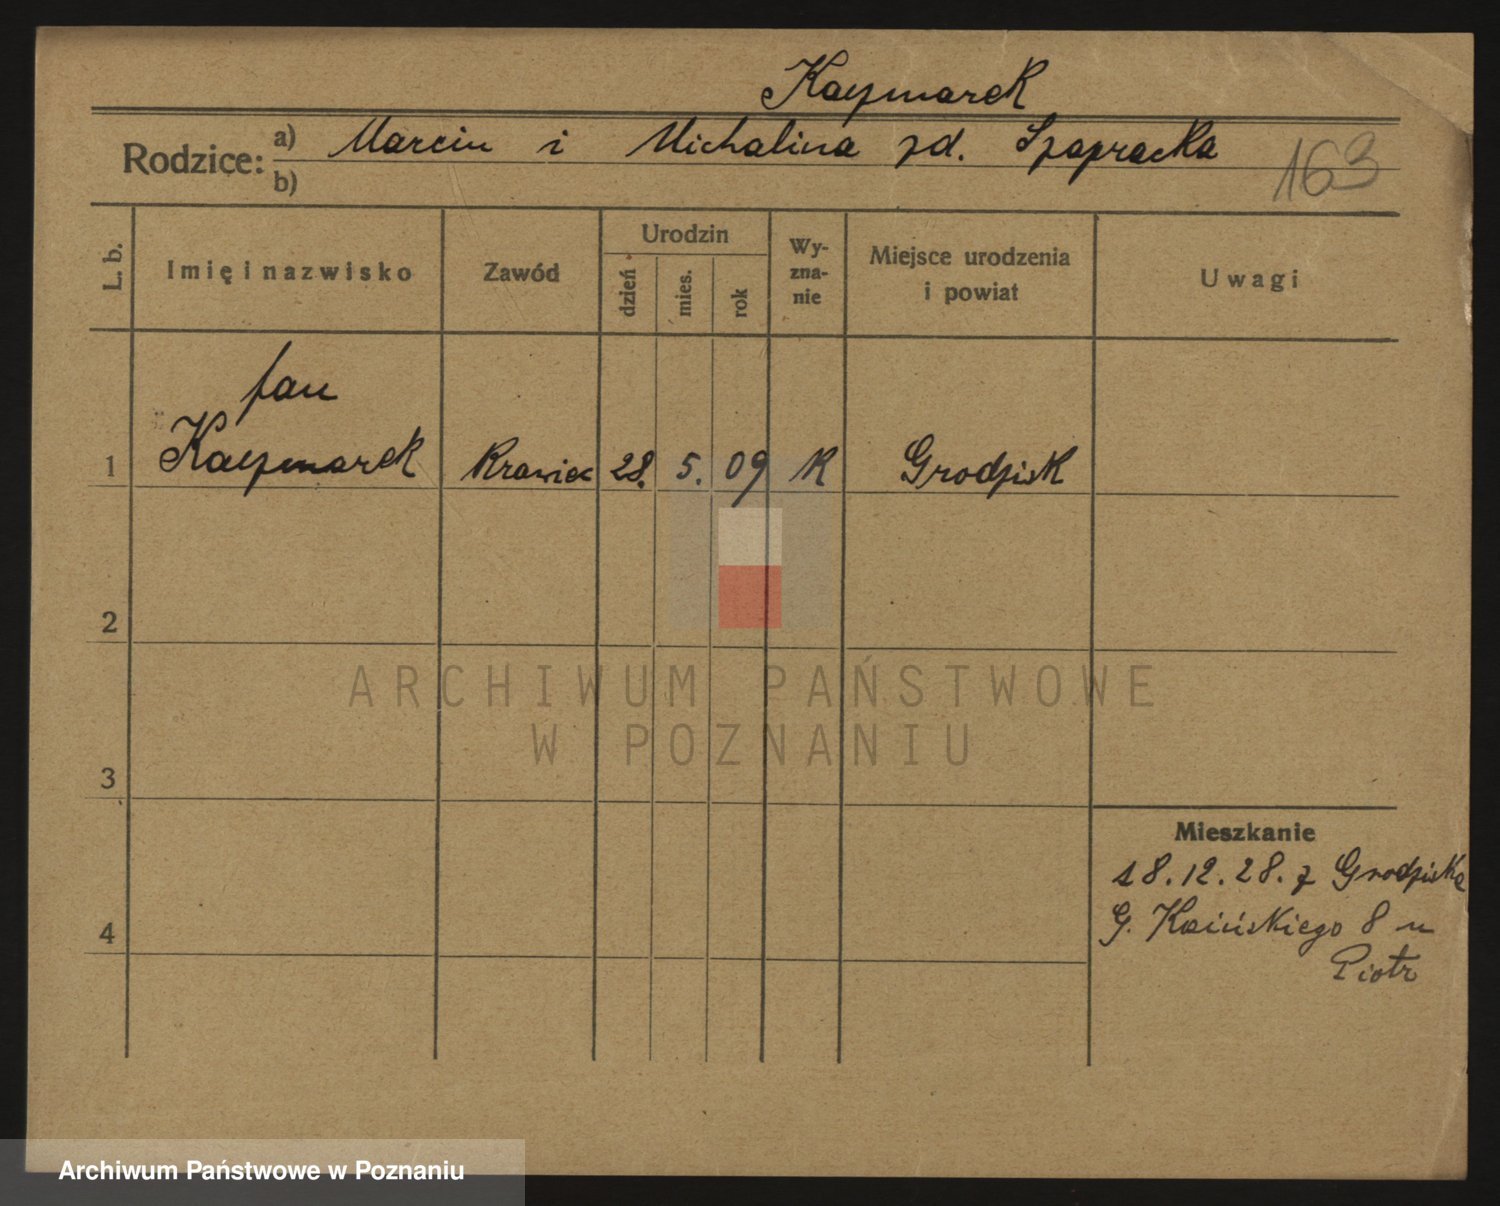 Kaczmarek
Rodzice:
a) Marcin i Michalina zd. Szapracka
b)
163
L. b.
Imię i nazwisko
Zawód
Urodzin
dzień
mies.
rok
Wy-
zna-
nie
Miejsce urodzenia
i powiat
Uwagi
Jan
1 Kaczmarek Krawiec 28. 5. 09 K Grodzisk
2
3
4
Mieszkanie
18.12.28. z Grodziska
G. 8 u
Piotr
ARCHIWUM PAŃSTWOWE
W POZNANIU
Archiwum Państwowe w Poznaniu